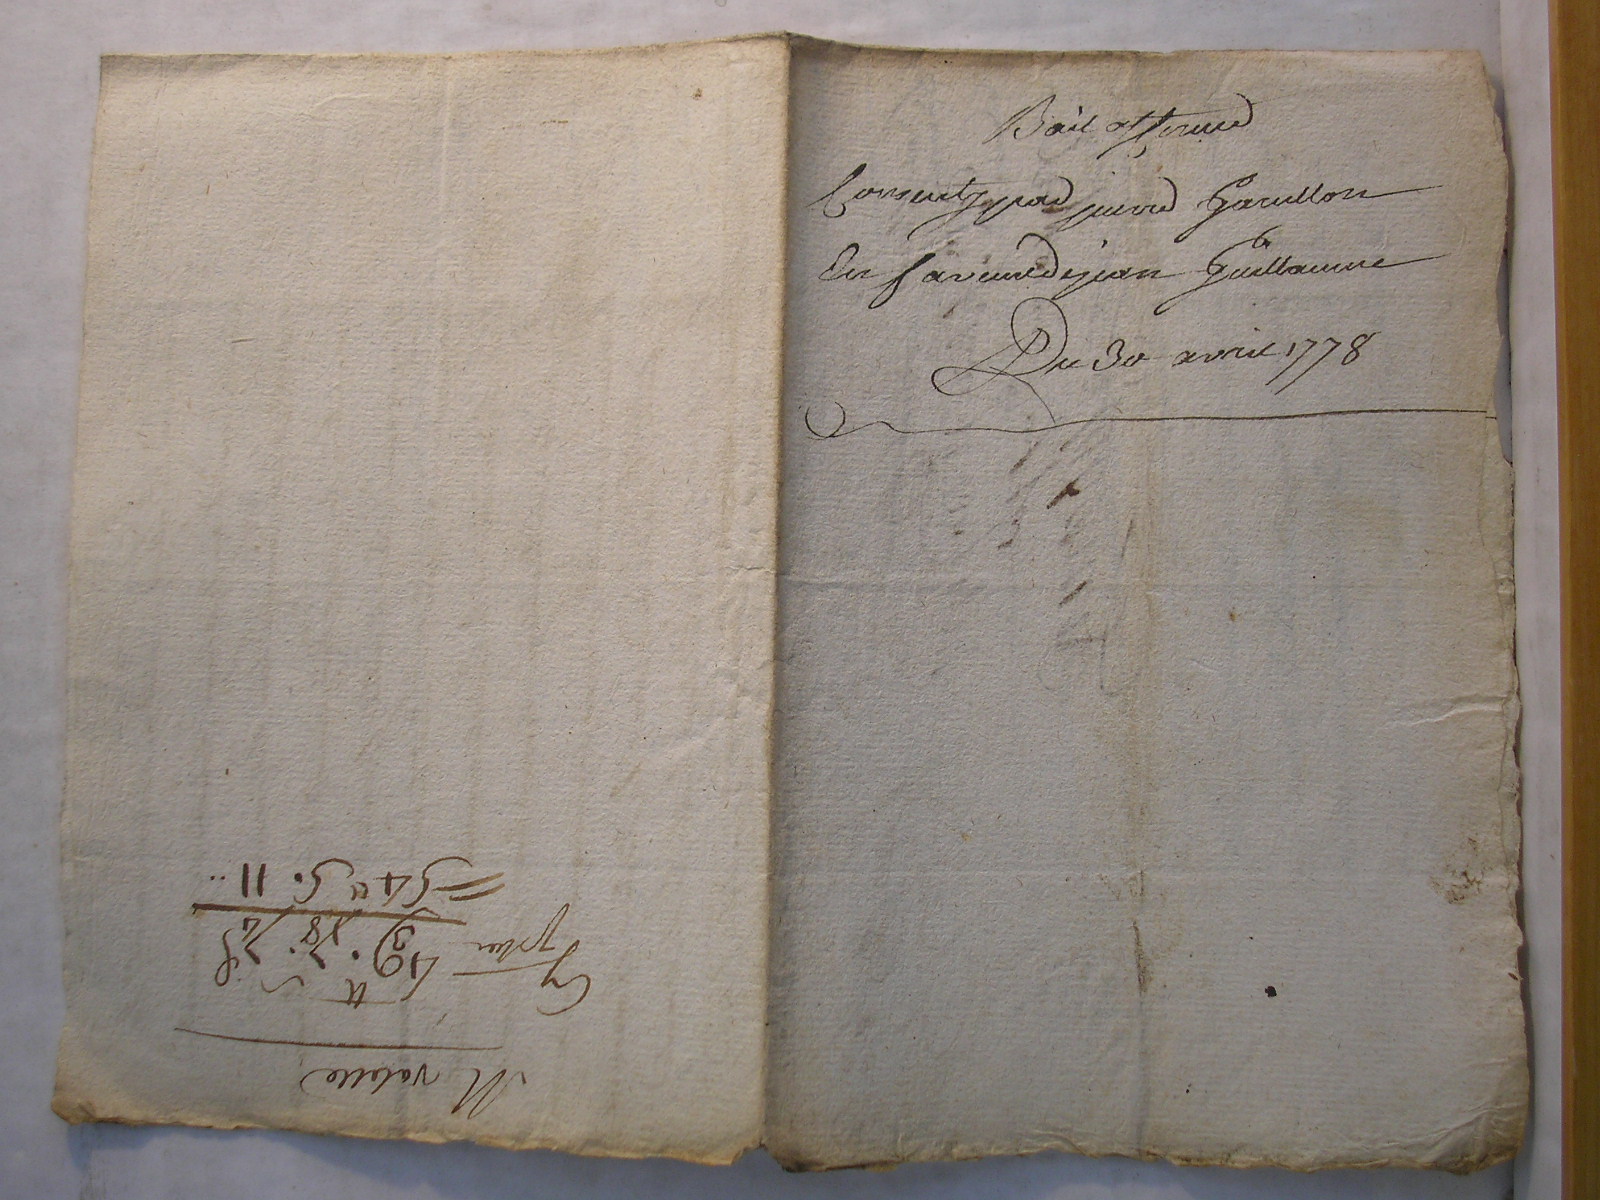 Bail afferme
Consenty par pierre Garullon
En faveur de jean Guillaume
Du 30 avril 1778
M valette
49
= 54 5. 11